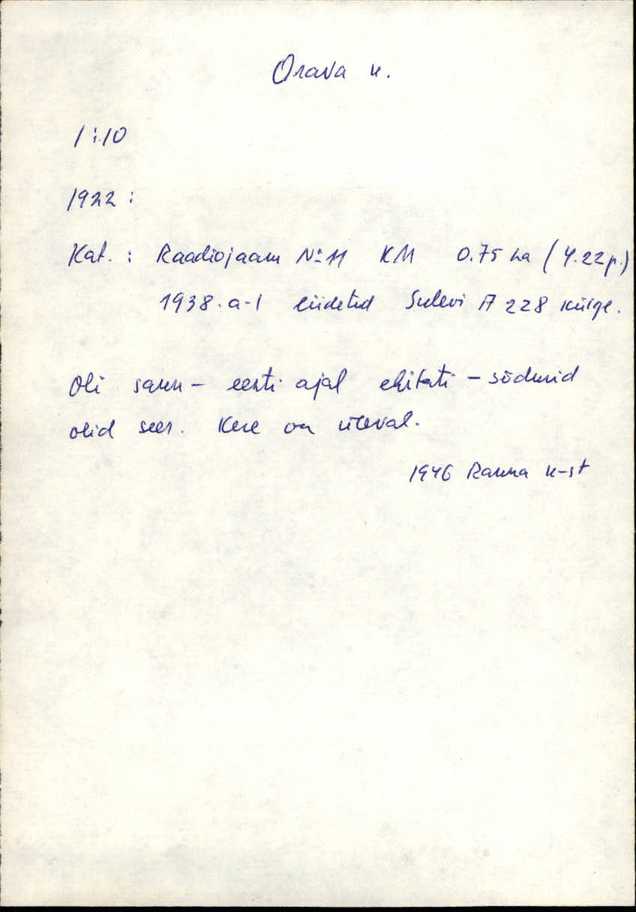 Orava k.
1:10
1922:
Kat.: Raadiojaam № 11 KM 0.75 ha (4.22p.)
1938.a-l liidetud Sulevi A 228 külge.
Oli saun - eesti ajal ehitati - sõdurid
olid sees. Kere on üleval.
1946 Ranna k-st